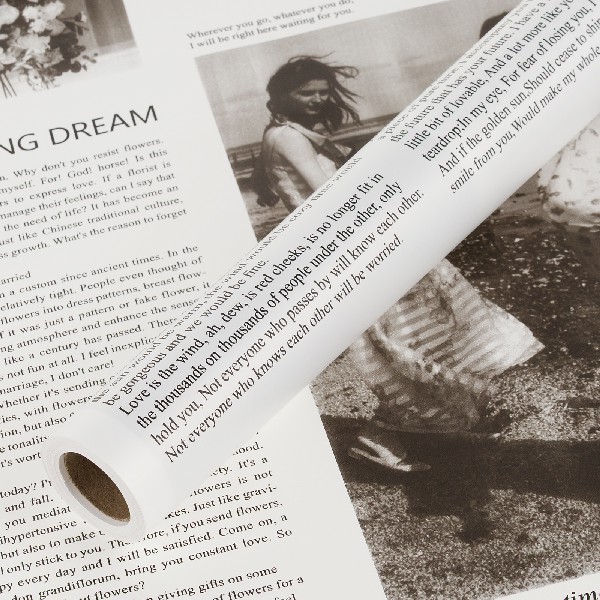 Wherever you go, whatever you do,
I will be right here waiting for you.
NG DREAM
n. Why don't you resist flowers.
myself. For! God! horse! Is this
rs to express love. If a florist is
manage their feelings, can I say that
the need of life? It has become an
ust like Chinese traditional culture,
ss growth. What's the reason to forget
arried
n a custom since ancient times. In the
elatively tight. People even thought of
flowers into dress patterns, breast flow-
f it was just a pattern or fake flower, it
ng atmosphere and enhance the sense
like a century has passed. There
not fun at all. I feel inexplic
marriage, I don't care!
whether it's sending
ies, with flowers
ion, but also
e tonality
t's wort
today? I'
and fall.
you mediat
hypertensive
but also to make t
I only stick to you. The
py every day and I will be satisfied. Come on, a
don grandiflorum, bring you constant love. So
flowers?
n giving gifts on some
e of flowers for a
feel
hood.
ety. It's a
owers is not
kes. Just like gravi-
ore, if you send flowers,
be gorgeous and we would be fine.
Love is the wind, ah, dew, is red cheeks, is no longer fit in
the thousands on thousands of people under the other, only
hold you. Not everyone who passes by will know each other.
Not everyone who knows each other will be worried.
the future that has your future, I have a
little bit of lovable. And a lot more like yo
teardrop:In my eye, For fear of losing you, I
And if the golden sun,.Should cease to shin
smile from you,Would make my whole
time